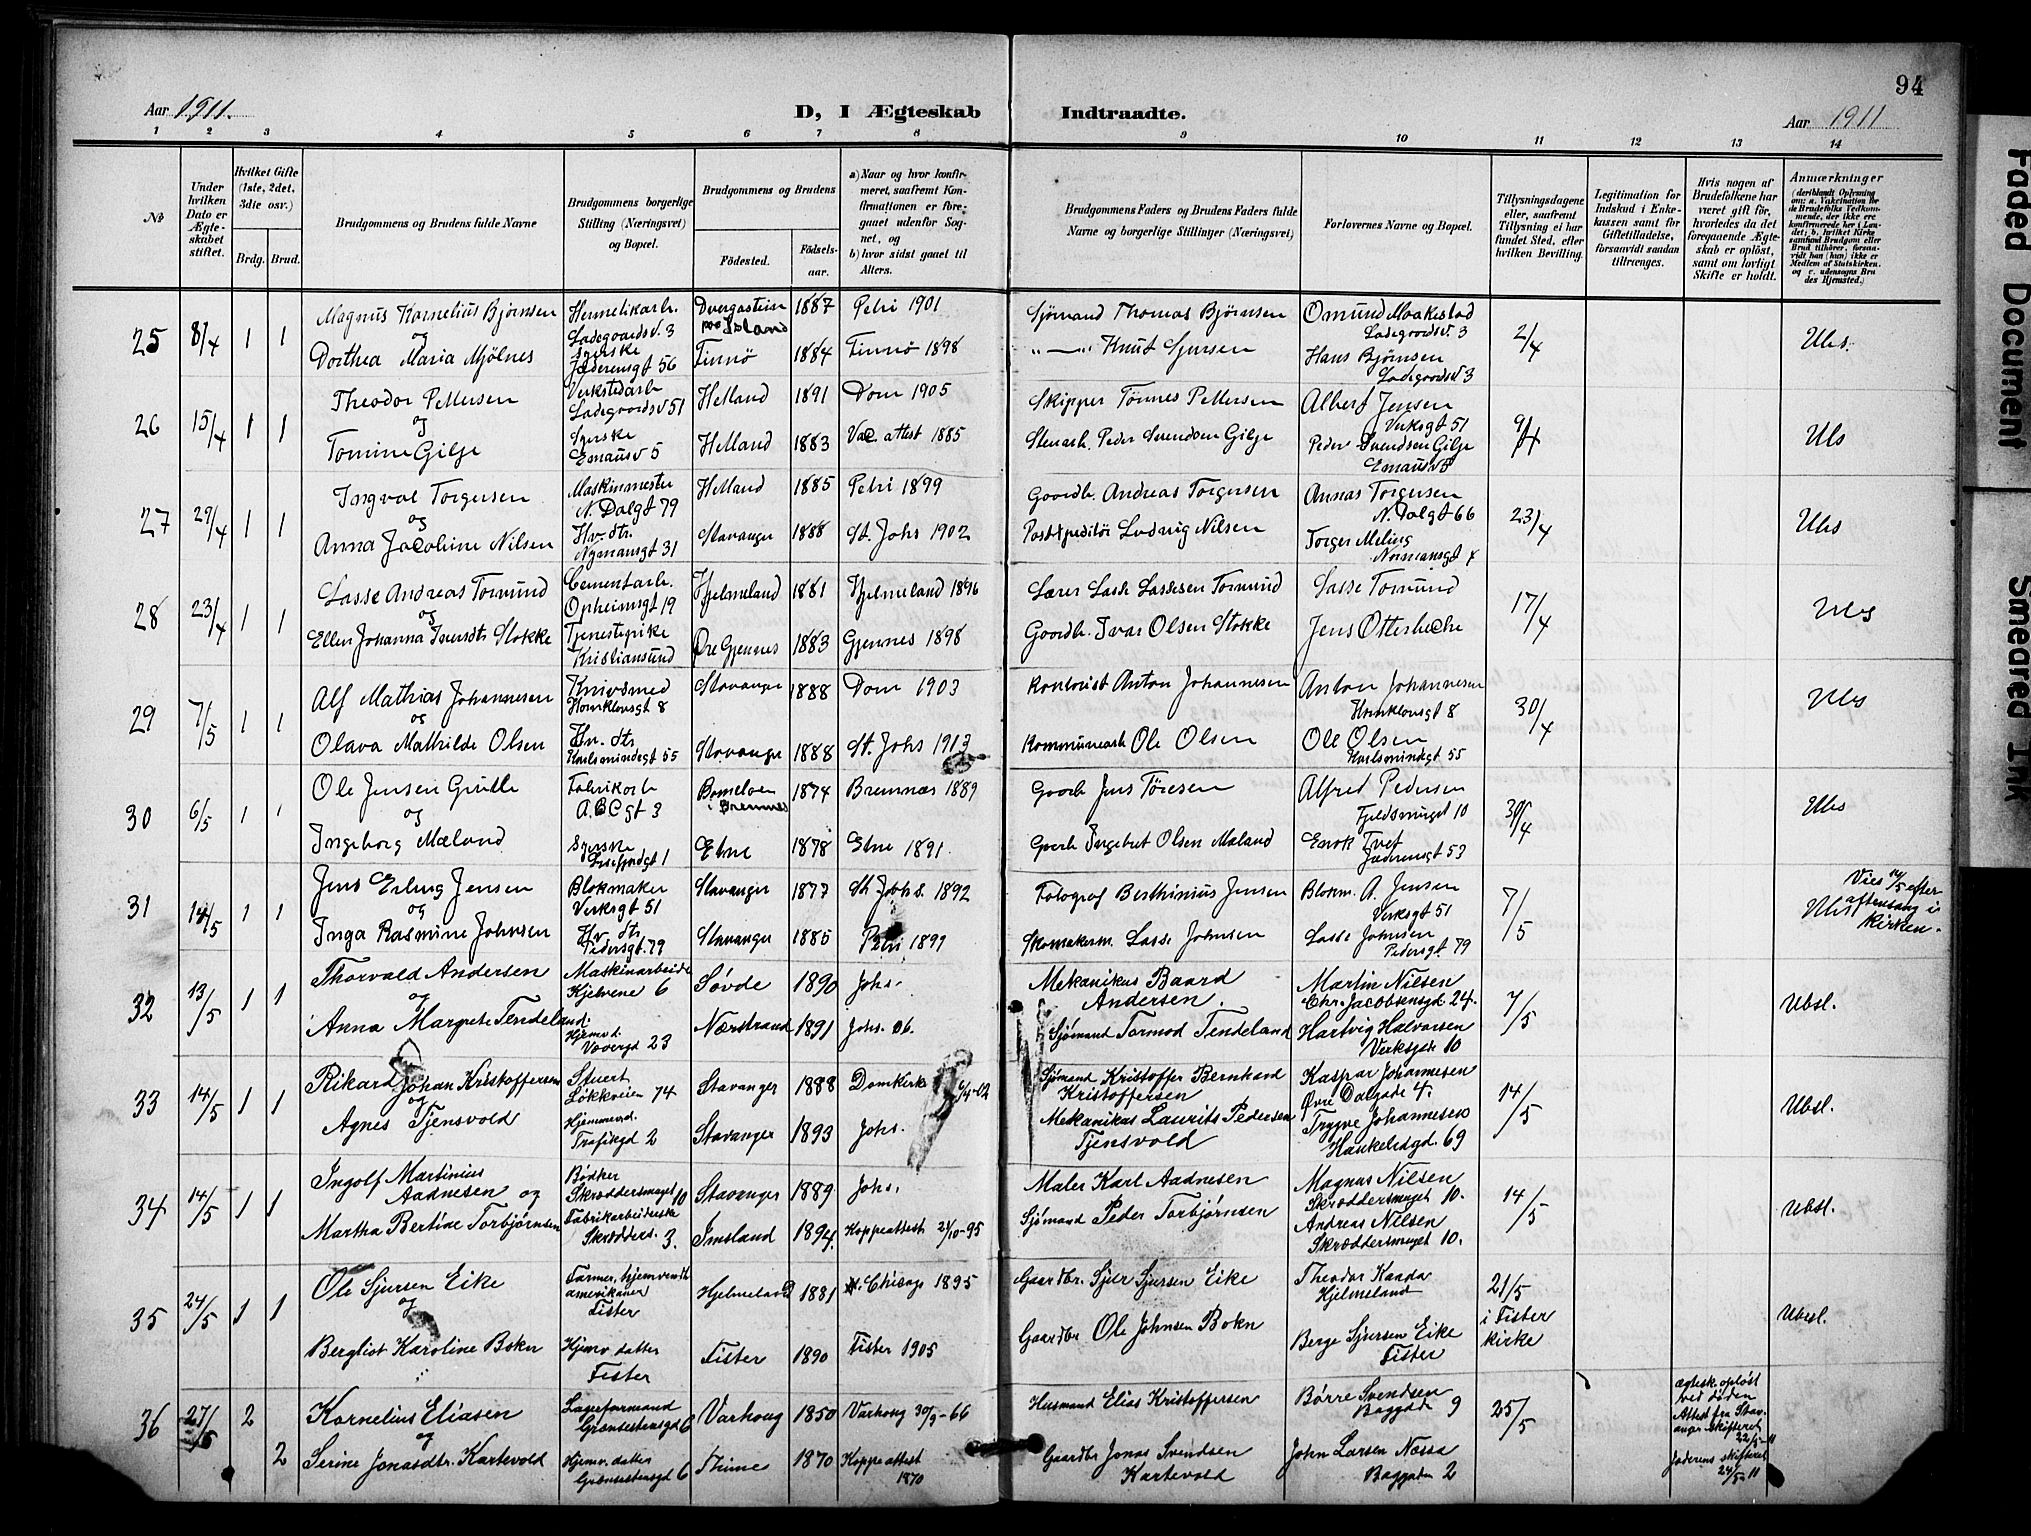 94
Aar 1911.
D, I Ægteskab Indtraadte.
Aar 1911
1 2 3 4 5 6 7 8 9 10 11 12 13 14
No
Under hvilken Dato er Ægteskabet stiftet.
Hvilket Gifte (1ste, 2det, 3die osv.)
Brdg. Brud.
Brudgommens og Brudens fulde Navne
Brudgommens borgerlige Stilling (Næringsvei) og Bopæl.
Brudgommens og Brudens
Fødested.
Fødselsaar.
a) Naar og hvor konfirmeret, saafremt Konfirmationen er foregaaet udenfor Sognet, og
b) hvor sidst gaaet til Alters.
Brudgommens Faders og Brudens Faders fulde Navne og borgerlige Stillinger (Næringsvei)
Forlovernes Navne og Bopæl.
Tillysningsdagene eller, saafremt Tillysning ei har fundet Sted, efter hvilken Bevilling.
Legitimation for Indskud i Enkekassen samt for Giftetilladelse, forsaavidt saadan tiltrænges.
Hvis nogen af Brudefolkene har været gift før, hvorledes da det foregaaende Ægteskab er opløst, samt om lovligt Skifte er holdt.
Anmærkninger
(deriblandt Oplysning om: a. Vakcination for de Brudefolks Vedkommende, der ikke ere konfirmerede her i Landet; b. hvilket Kirkesamfund Brudgom eller Brud tilhører, forsaavidt han (hun) ikke er Medlem af Statskirken, og c. udensogns Brudes Hjemsted.)
25 8/4 1 1 Magnus Kornelius Bjørnsen Hermetikarb. Ladegaardsv. 3 Dvergastein Island 1887 Petri 1901 Sjømand Thomas Bjørnsen Omund Maakestad Ladegaardsv. 3 2/4 Ubs.
og
Dorthea Maria Mjølnes Syerske Jæderensgt 56 Finnø 1884 Finnø 1898 Knut Sjursen Hans Bjørnsen Ladegaardsv 3
26 15/4 1 1 Theodor Pettersen Verkstedarb Ladegaardsv 51 Hetland 1891 Dom 1905 Skipper Tønnes Pettersen Albert Jensen Verksgt 51 9/4 Ubs
og
Tomine Gilje Syerske Emausv 5 Hetland 1883 Vac. attest 1885 Stenarb. Peder Svendsen Gilje Peder Svendsen Gilje Emausv 5
27 29/4 1 1 Ingval Torgersen Maskinmester N. Dalgt 79 Hetland 1885 Petri 1899 Gaardb. Andreas Torgersen Annas Torgersen N. Dalgt 66 23/4 Ubs
og
Anna Jacobine Nilsen Hv. dtr. Nymansgt 31 Stavanger 1888 St. Johs 1902 Postexpeditør Ludvig Nilsen Torger Meling
28 23/4 1 1 Lasse Andreas Tomund Cementarb. Opheimsgt 19 Hjelmeland 1881 Hjelmeland 1896 Lærer Lasse Lassesen Tomund Lasse Tomund 17/4 Ubs
og
Ellen Johanna Iversdtr Stokke Tjenestepike Kristiansund Øre Gjemnes 1883 Gjemnes 1898 Gaardb. Ivar Olsen Stokke Jens Otterbeche
29 7/5 1 1 Alf Mathias Johannesen Knivsmed Hornklovsgt 8 Stavanger 1888 Dom 1903 Kontorist Anton Johannesen Anton Johannesen Hornklovsgt 8 30/4 Ubs
og
Olava Mathilde Olsen Hv. dtr Karlsmindegt 55 Stavanger 1888 St. Johs 1903 Kommunearb Ole Olsen Ole Olsen Karlsmindegt 55
30 6/5 1 1 Ole Jensen Grutle Fabrikarb A.B.C gt 3 Bømeloen i Bremnes 1874 Bremnæs 1889 Gaarb Jens Tøresen Alfred Pedersen Fjeldsmuget 10 30/4 Ubs
og
Ingeborg Mæland Syerske Lysefjordgt 1 Etne 1878 Etne 1891. Gaarb Ingebret Olsen Mæland Enok Tvet Jæderensgt 53
31 14/5 1 1 Jens Erling Jensen Blokmaker Verksgt 51 Stavanger 1877 St Johs. 1892 Fotograf Berthinius Jensen Blokm. A. Jensen Verksgt 51 7/5 Ubs Vies 14/5 efter aftensang i kirken.
og
Inga Rasmine Johnsen Hv. dtr. Pedersgt 79 Stavanger 1885 Petri 1899 Skomakerm. Lasse Johnsen Lasse Johnsen Pedersgt 79
32 13/5 1 1 Thorvald Andersen Maskinarbeide Kjelvene 6 Søvde 1890 Johs. Mekanikus Baard Andersen. Martin Nilsen Chr. Jacobsensgd. 24. 7/5 Ubsl.
og
Anna Margrete Tendeland. Hjemv.d. Vævergd 23 Nærstrand 1891 Johs. 06. Sjømand Tormod Tendeland Hartvig Halvorsen Verksgdt 10
33 14/5 1 1 Rikard Johan Kristoffersen Stuert Løkkveien 74 Stavanger 1888 Domkirk 6/4-02 Sjømand Kristoffer Bernhard Kristoffersen Kaspar Johannesen Øvre Dalgade 4. 14/5 Ubsl.
og
Agnes Tjensvold Hjemmevd. Trafikgd 2 Stavanger 1893 Johs. Mekanikus Laurits Pedersen Tjensvold Trygve Johannesen Haukeliegd. 69
34 14/5 1 1 Ingolf Martinius Aadnesen og Bødker Skræddersmuget 10 Stavanger 1889 Johs. Maler Karl Aadnesen Magnus Nilsen Skræddersmuget 10. 14/5 Ubsl.
Martha Bertine Torbjørnsen Fabrikarbeiderske Skrædders. 3. Imsland 1894. Koppeattest 21/10-95 Sjømand Peder Torbjørnsen Andreas Nilsen Skræddersmuget 10.
35 24/5 1 1 Ole Sjursen Eike Farmer, hjemvendt amerikaner Fister Hjelmeland 1881 Chicago 1895 Gaardbr. Sjur Sjursen Eike Theodor Kaada Hjelmeland 21/5 i Fister kirke Ubsl.
og
Bergliot Karoline Bokn Hjemv datter Fister Fister 1890 Fister 1905 Gaardbr Ole Johnsen Bokn Berge Sjursen Eike Fister
36 27/5 2 Kornelius Eliasen Lagerformand Grønsestensgd 6 Varhoug 1850 Varhoug 30/9-66 Husmand Elias Kristoffersen Børre Svendsen Baggade 9 25/5 ægtesk. opløst ved døden Attest fra Stavanger Skifteret 22/5-11
og
2 Serine Jonasdtr. Kartevold Hjemv. datter Grønsestensgd 6 Thime 1870 Koppeattest 1870 Gaardbr Jonas Svendsen Kartevold John Larsen Næssa Baggaden 2 Jæderens skifteret 24/5 11
Faded Document
Smeared Ink